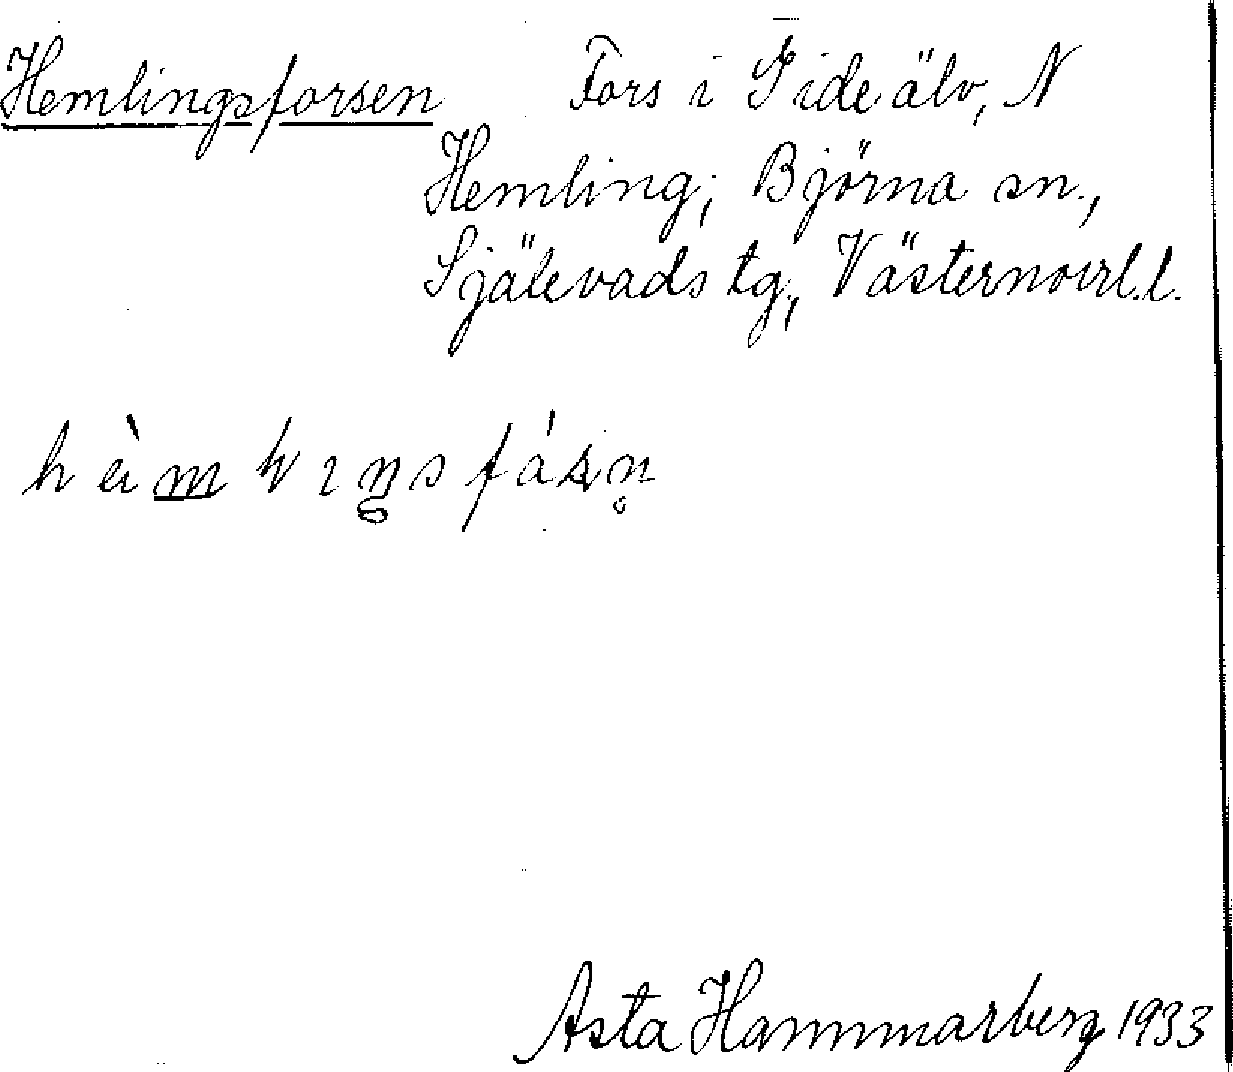 Hemlingsforsen Fors i Gide älv, N
Hemling; Björna sn.,
Själevads tg, Västernorrl.l.
Asta Hammarberg 1933